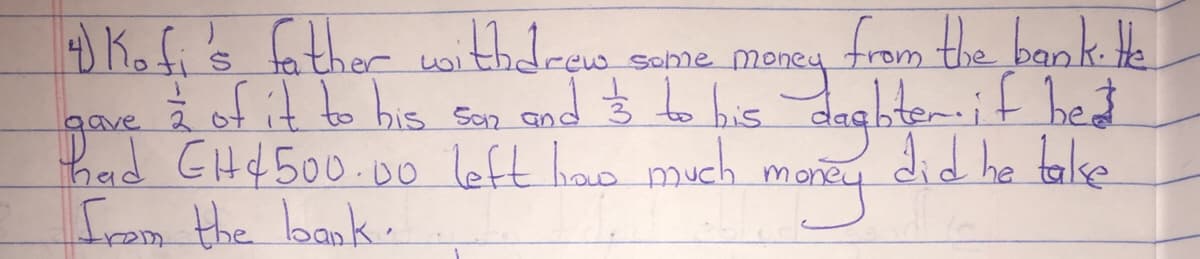 4) Kofi's father withdrew some money from the bank. He
gave 1/2 of it to his son and 1/3 to his daghter. if he
had GH¢500.00 left how much money did he take
from the bank.